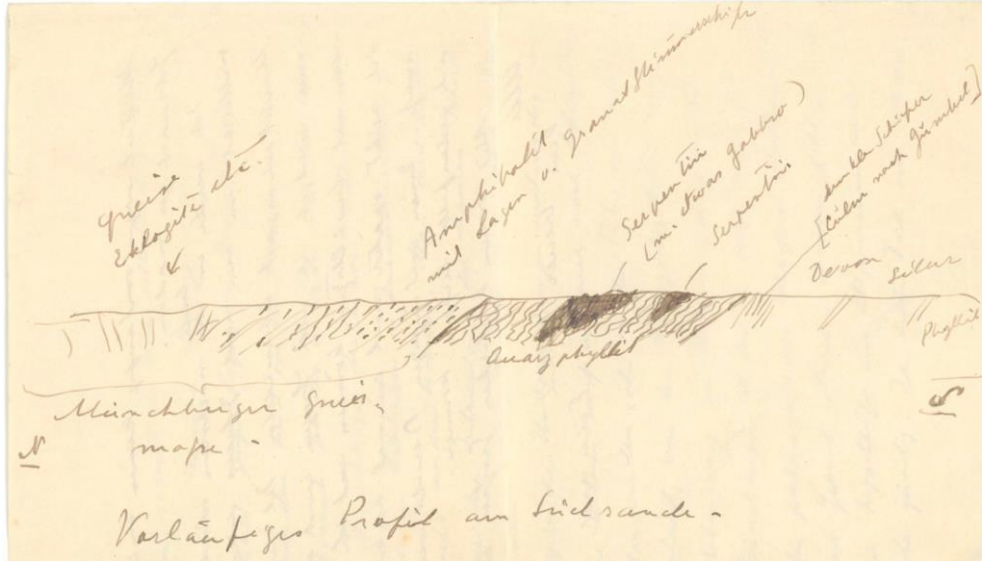 Gneise
Eklogite etc.
Amphibolit
mit Lagen v. Granatglimmerschiefer
Serpentin
[m. etwas Gabbro)
Serpentin
dunkle Schiefer
[Culm nach Gümbel]
Devon
Silur
Phyllit
Quarzphyllit
Münchberger Gneis-
masse -
N
S
Vorläufiges Profil am Südrande -